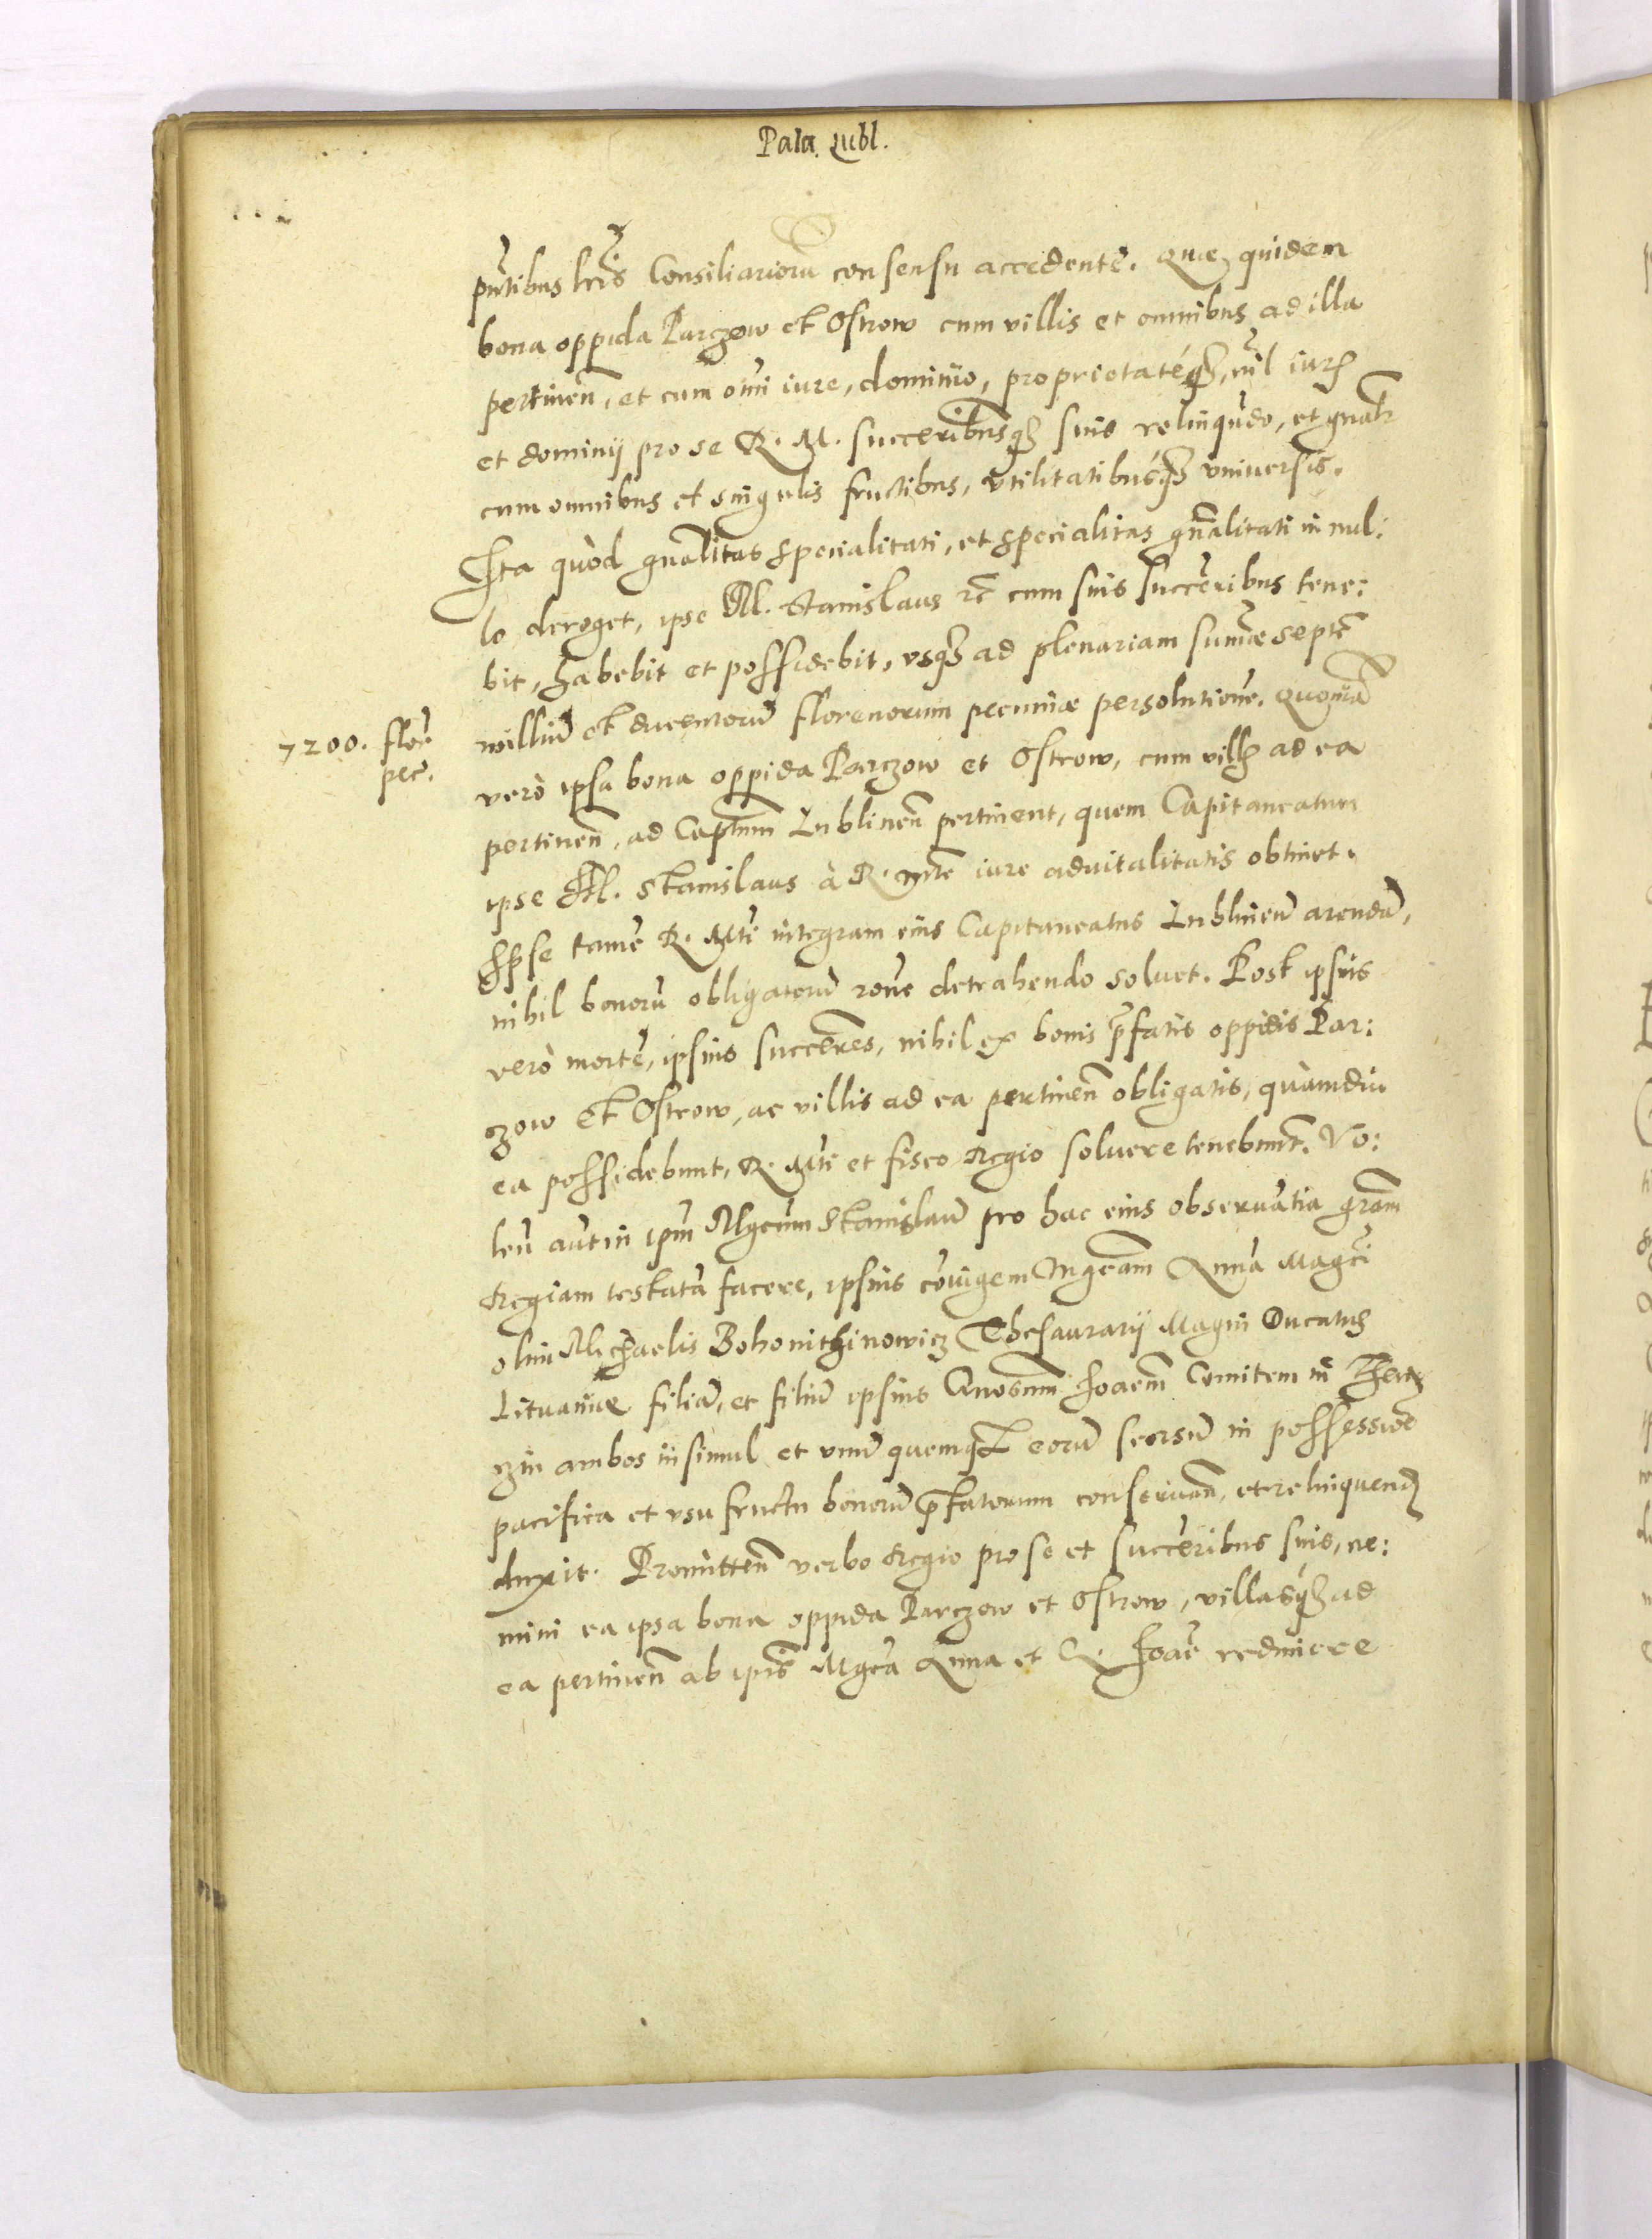 Pala. Lubl.
pñtibus lr̃is Consiliariorũ consensu accedente. Quæ quidem
bona oppida Parczow et Ostrow cum villis et omnibus ad illa
pertineñ, et cum oĩi iure, dominio, proprietatéq₃, nil iur̃
et dominij pro se R. M. succeribusq₃ suis relinquẽdo, et gñalr
cum omnibus et singulis fructibus, vtilitatibúsq₃ vniuersis.
Ita quòd gñalitas specialitati, et specialitas gñalitati in nul:
lo deroget, ipse M. Stanislaus etc̃ cum suis succẽribus tene:
bit, habebit et possidebit, vsq₃ ad plenariam summæ septẽ
milliũ et ducentorũ florenorum pecuniæ persolutionẽ. Quoniã
7200. flor̃
pec.
verò ipsa bona oppida Parczow et Ostrow, cum villis ad ea
pertineñ, ad Captum̃ Lublineñ pertinent, quem Capitaneatum
ipse M. Stanislaus à R. Mte iure aduitalitatis obtinet.
Ipse tamẽ R. Mti integram eius Capitaneatus Lublineñ arendã,
nihil bonorũ obligatorũ rõne detrahendo soluet. Post ipsius
verò mortẽ, ipsius succẽres, nihil ex bonis p̃fatis oppidis Par:
czow et Ostrow, ac villis ad ea pertineñ obligatis, quàmdiu
ea possidebunt, R. Mti et fisco Regio soluere tenebunt̃. Vo:
leñ autẽ in ipm̃ Mgcum Stanislaũ pro hac eius obseruãtia gr̃am
Regiam testatã facere, ipsius cõiugem Mgcam Annã Magci
olim Michaelis Bohonithinowicz Thesaurarij Magni Ducatus
Lituaniæ filiã, et filiũ ipsius Gnosum Ioañem Comitem in Thẽn
czin ambos insimul et vnũ quemq₃ eorũ seorsũ in possessiõe
pacifica et vsu fructu bonorũ p̃fatorum conseruañ, et relinquend̃
duxit. Promitteñ verbo Regio pro se et succẽribus suis, ne:
mini ea ipsa bona oppida Parczow et Ostrow, villasq₃ ad
ea pertineñ ab ipĩs Mgca Anna et G. Ioañe redimere